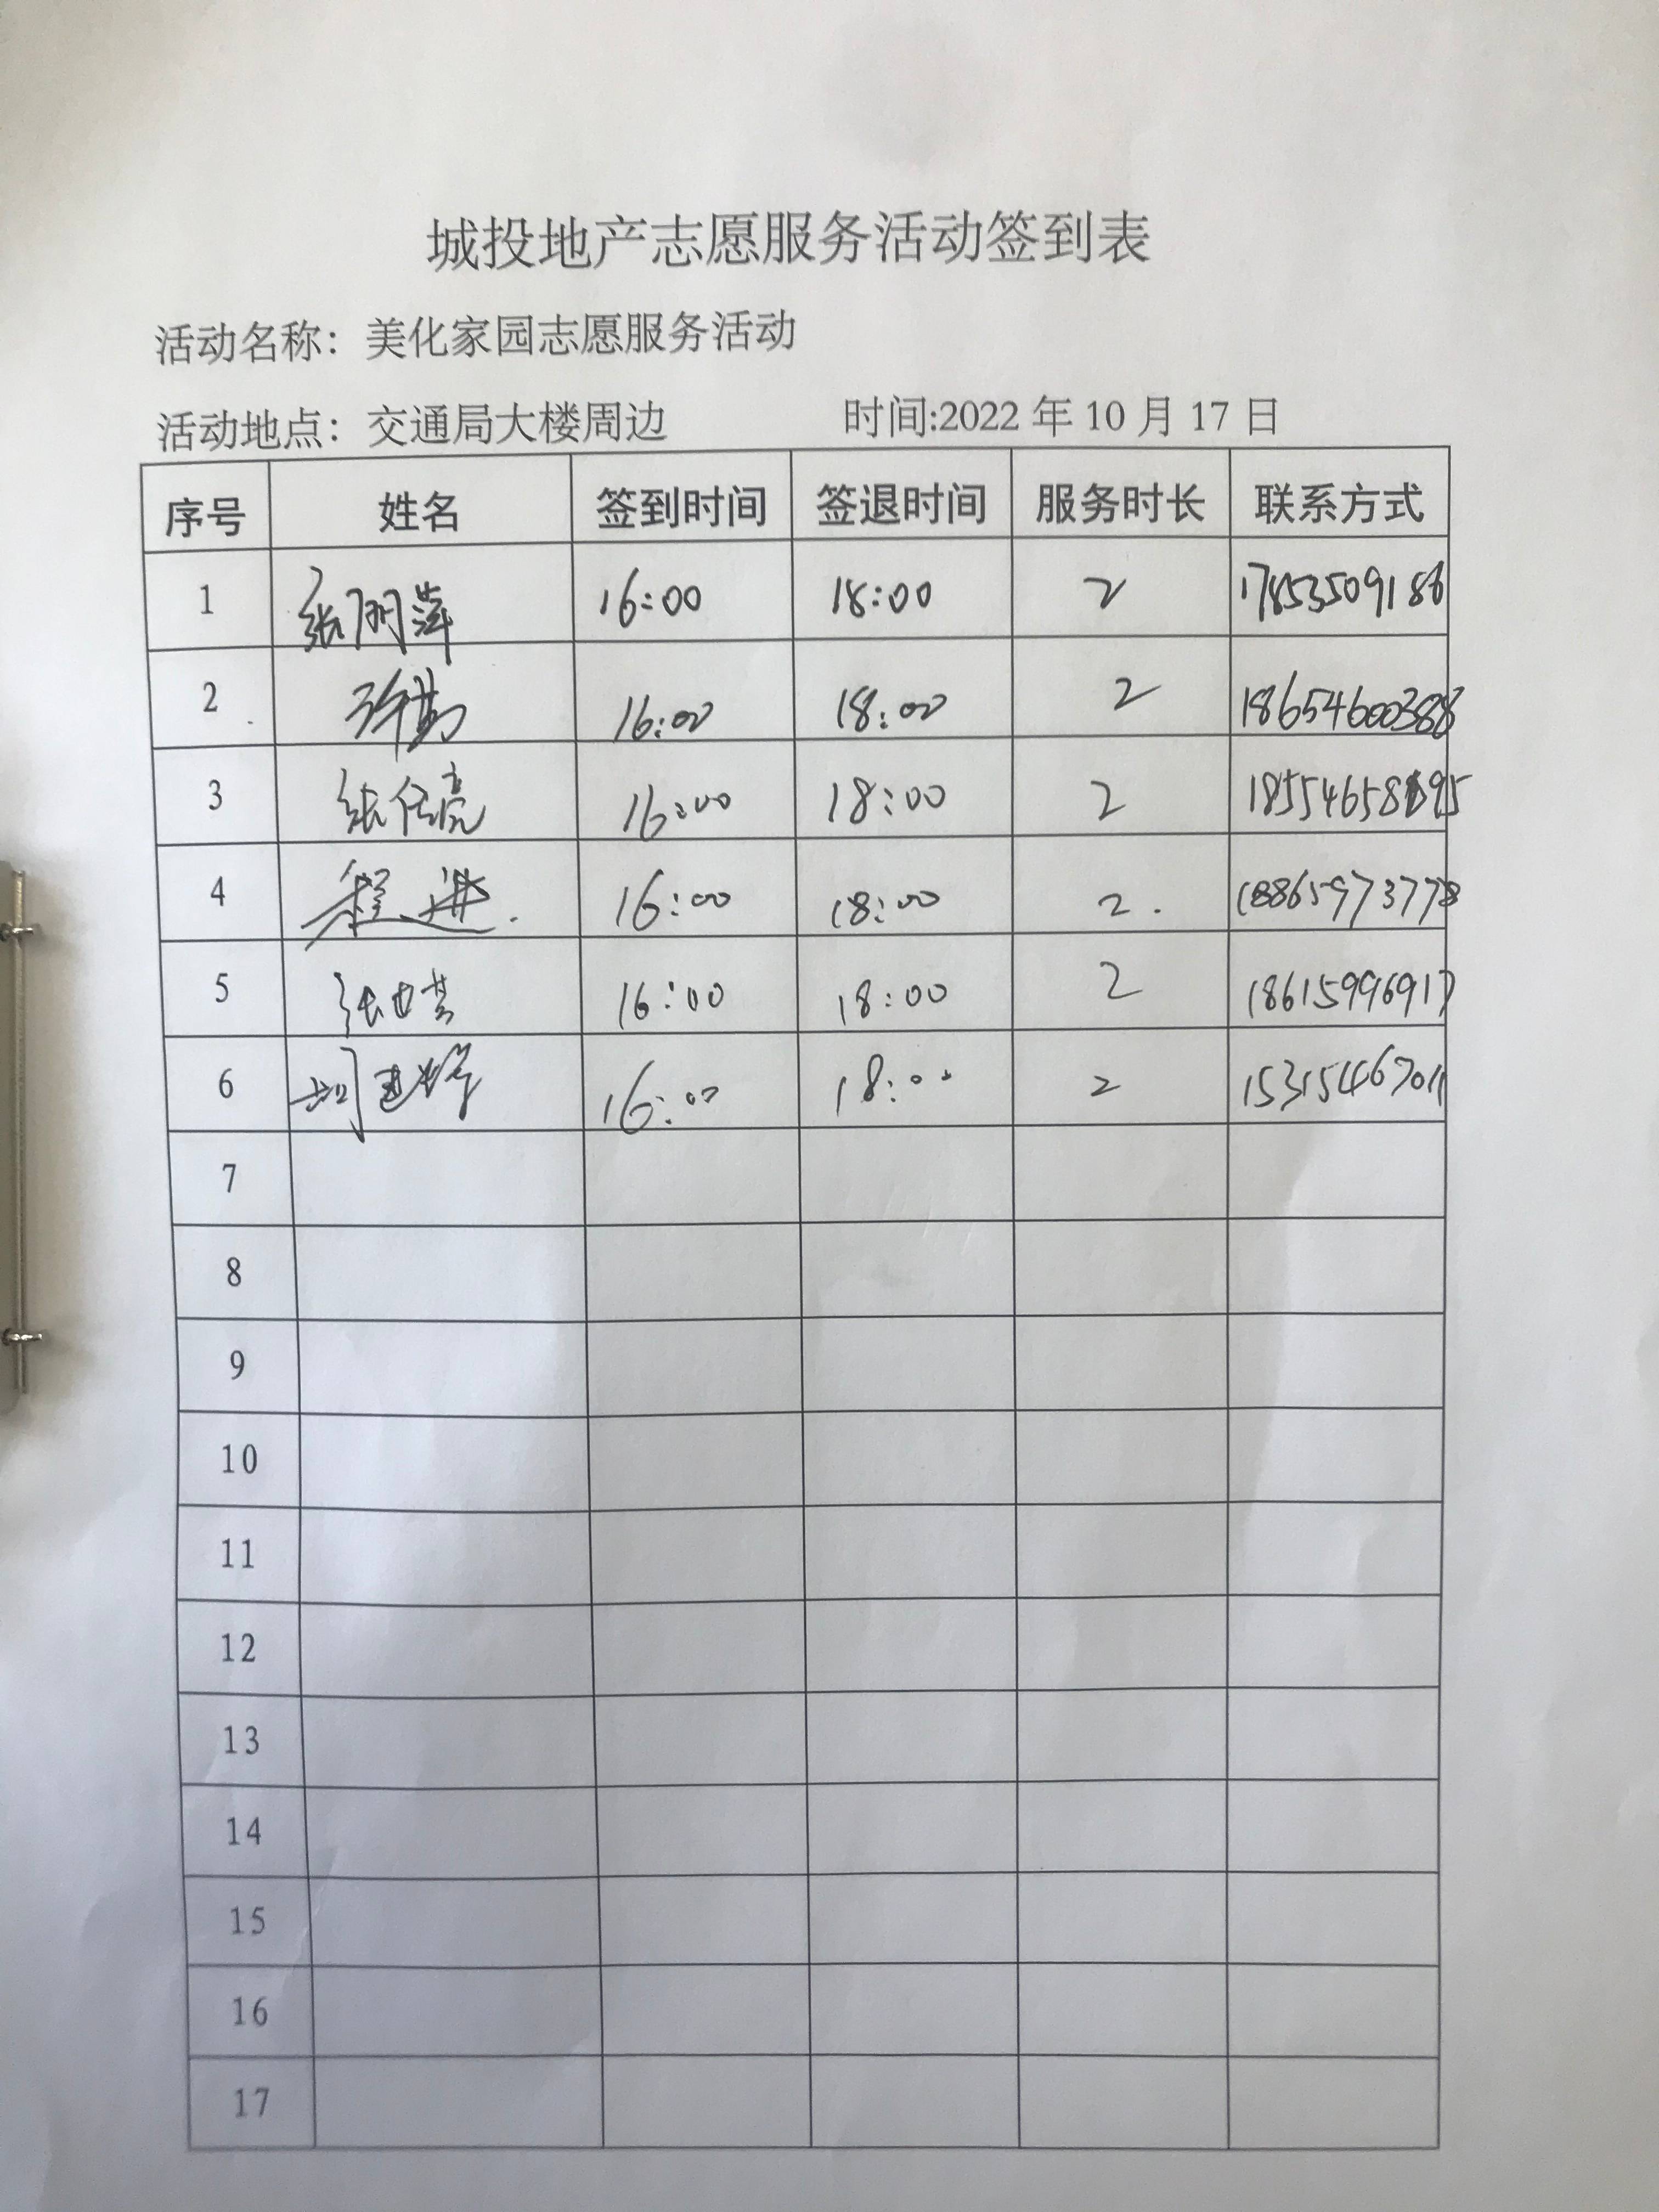 城投地产志愿服务活动签到表
活动名称：美化家园志愿服务活动
活动地点：交通局大楼周边 时间:2022 年 10 月 17 日
序号 姓名 签到时间 签退时间 服务时长 联系方式
1 张明萍 16:00 18:00 2 17853509186
2 许勤 16:00 18:00 2 18654600388
3 张任亮 16:00 18:00 2
4 程进. 16:00 18:00 2. 18865973778
5 16:00 18:00 2 18615996917
6 16:00 18:00 2 15315467011
7
8
9
10
11
12
13
14
15
16
17